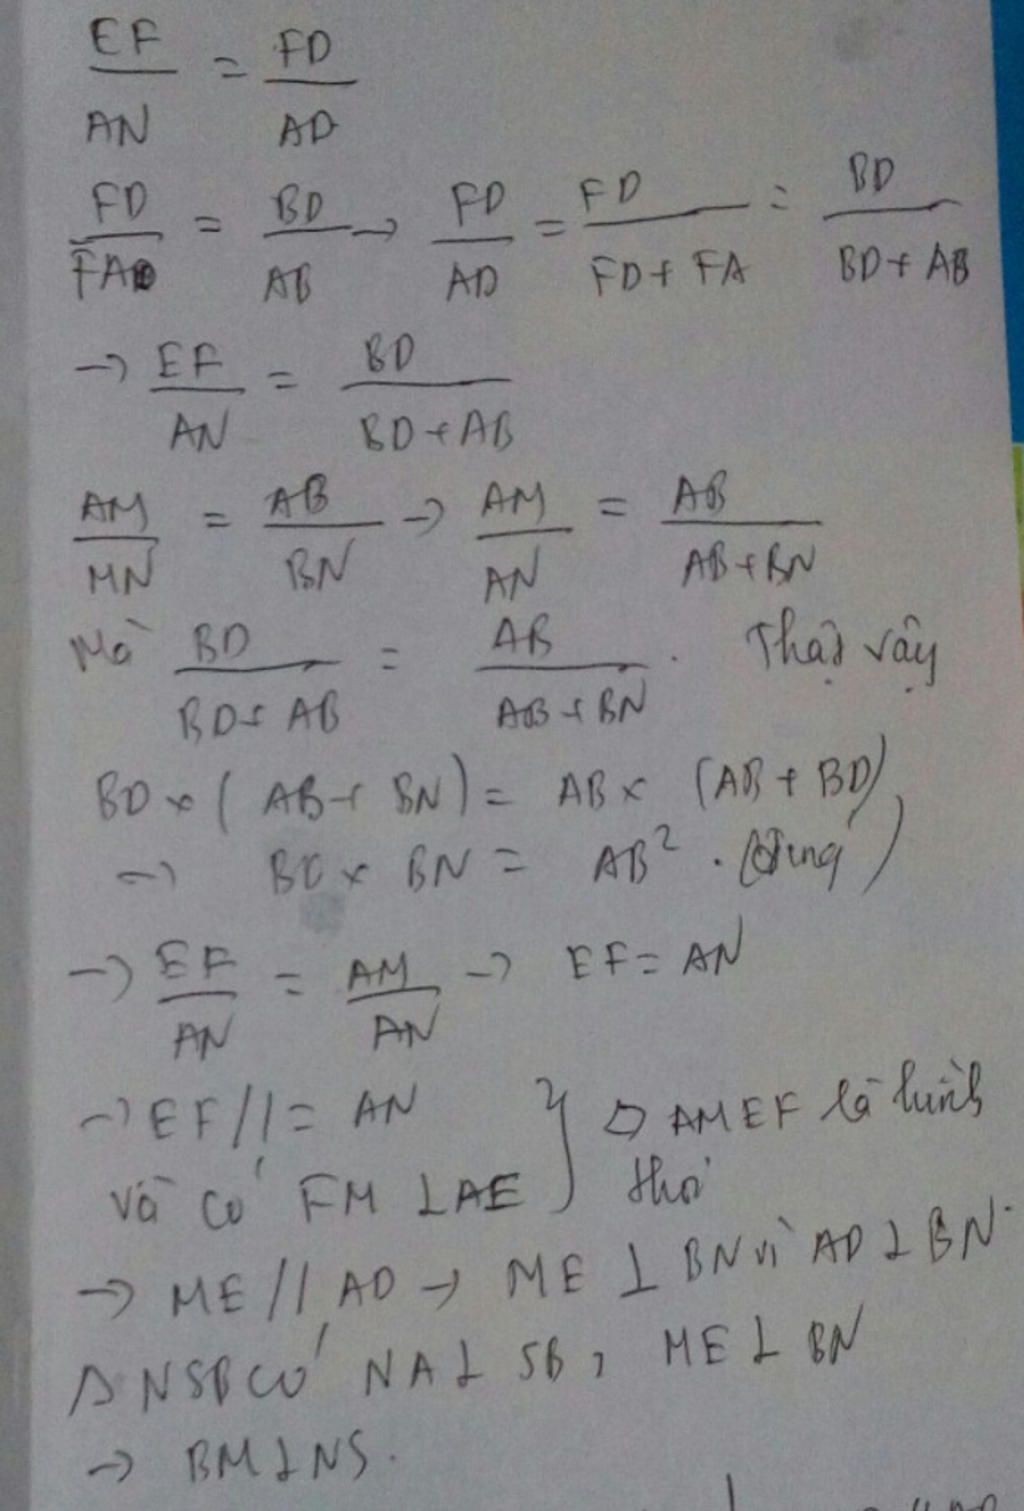 EF/AN = FD/AD
FD/FA = BD/AB → FD/AD = FD/(FD + FA) = BD/(BD + AB)
→ EF/AN = BD/(BD + AB)
AM/MN = AB/BN → AM/AN = AB/(AB + BN)
Mà BD/(BD + AB) = AB/(AB + BN). Thật vậy
BD × (AB + BN) = AB × (AB + BD)
→ BD × BN = AB². (đúng)
→ EF/AN = AM/AN → EF = AN
→ EF // = AN } ▱ AMEF là hình
và có FM ⊥ AE } thoi
→ ME // AD → ME ⊥ BN vì AD ⊥ BN.
Δ NSB có NA ⊥ SB, ME ⊥ BN
→ BM ⊥ NS.